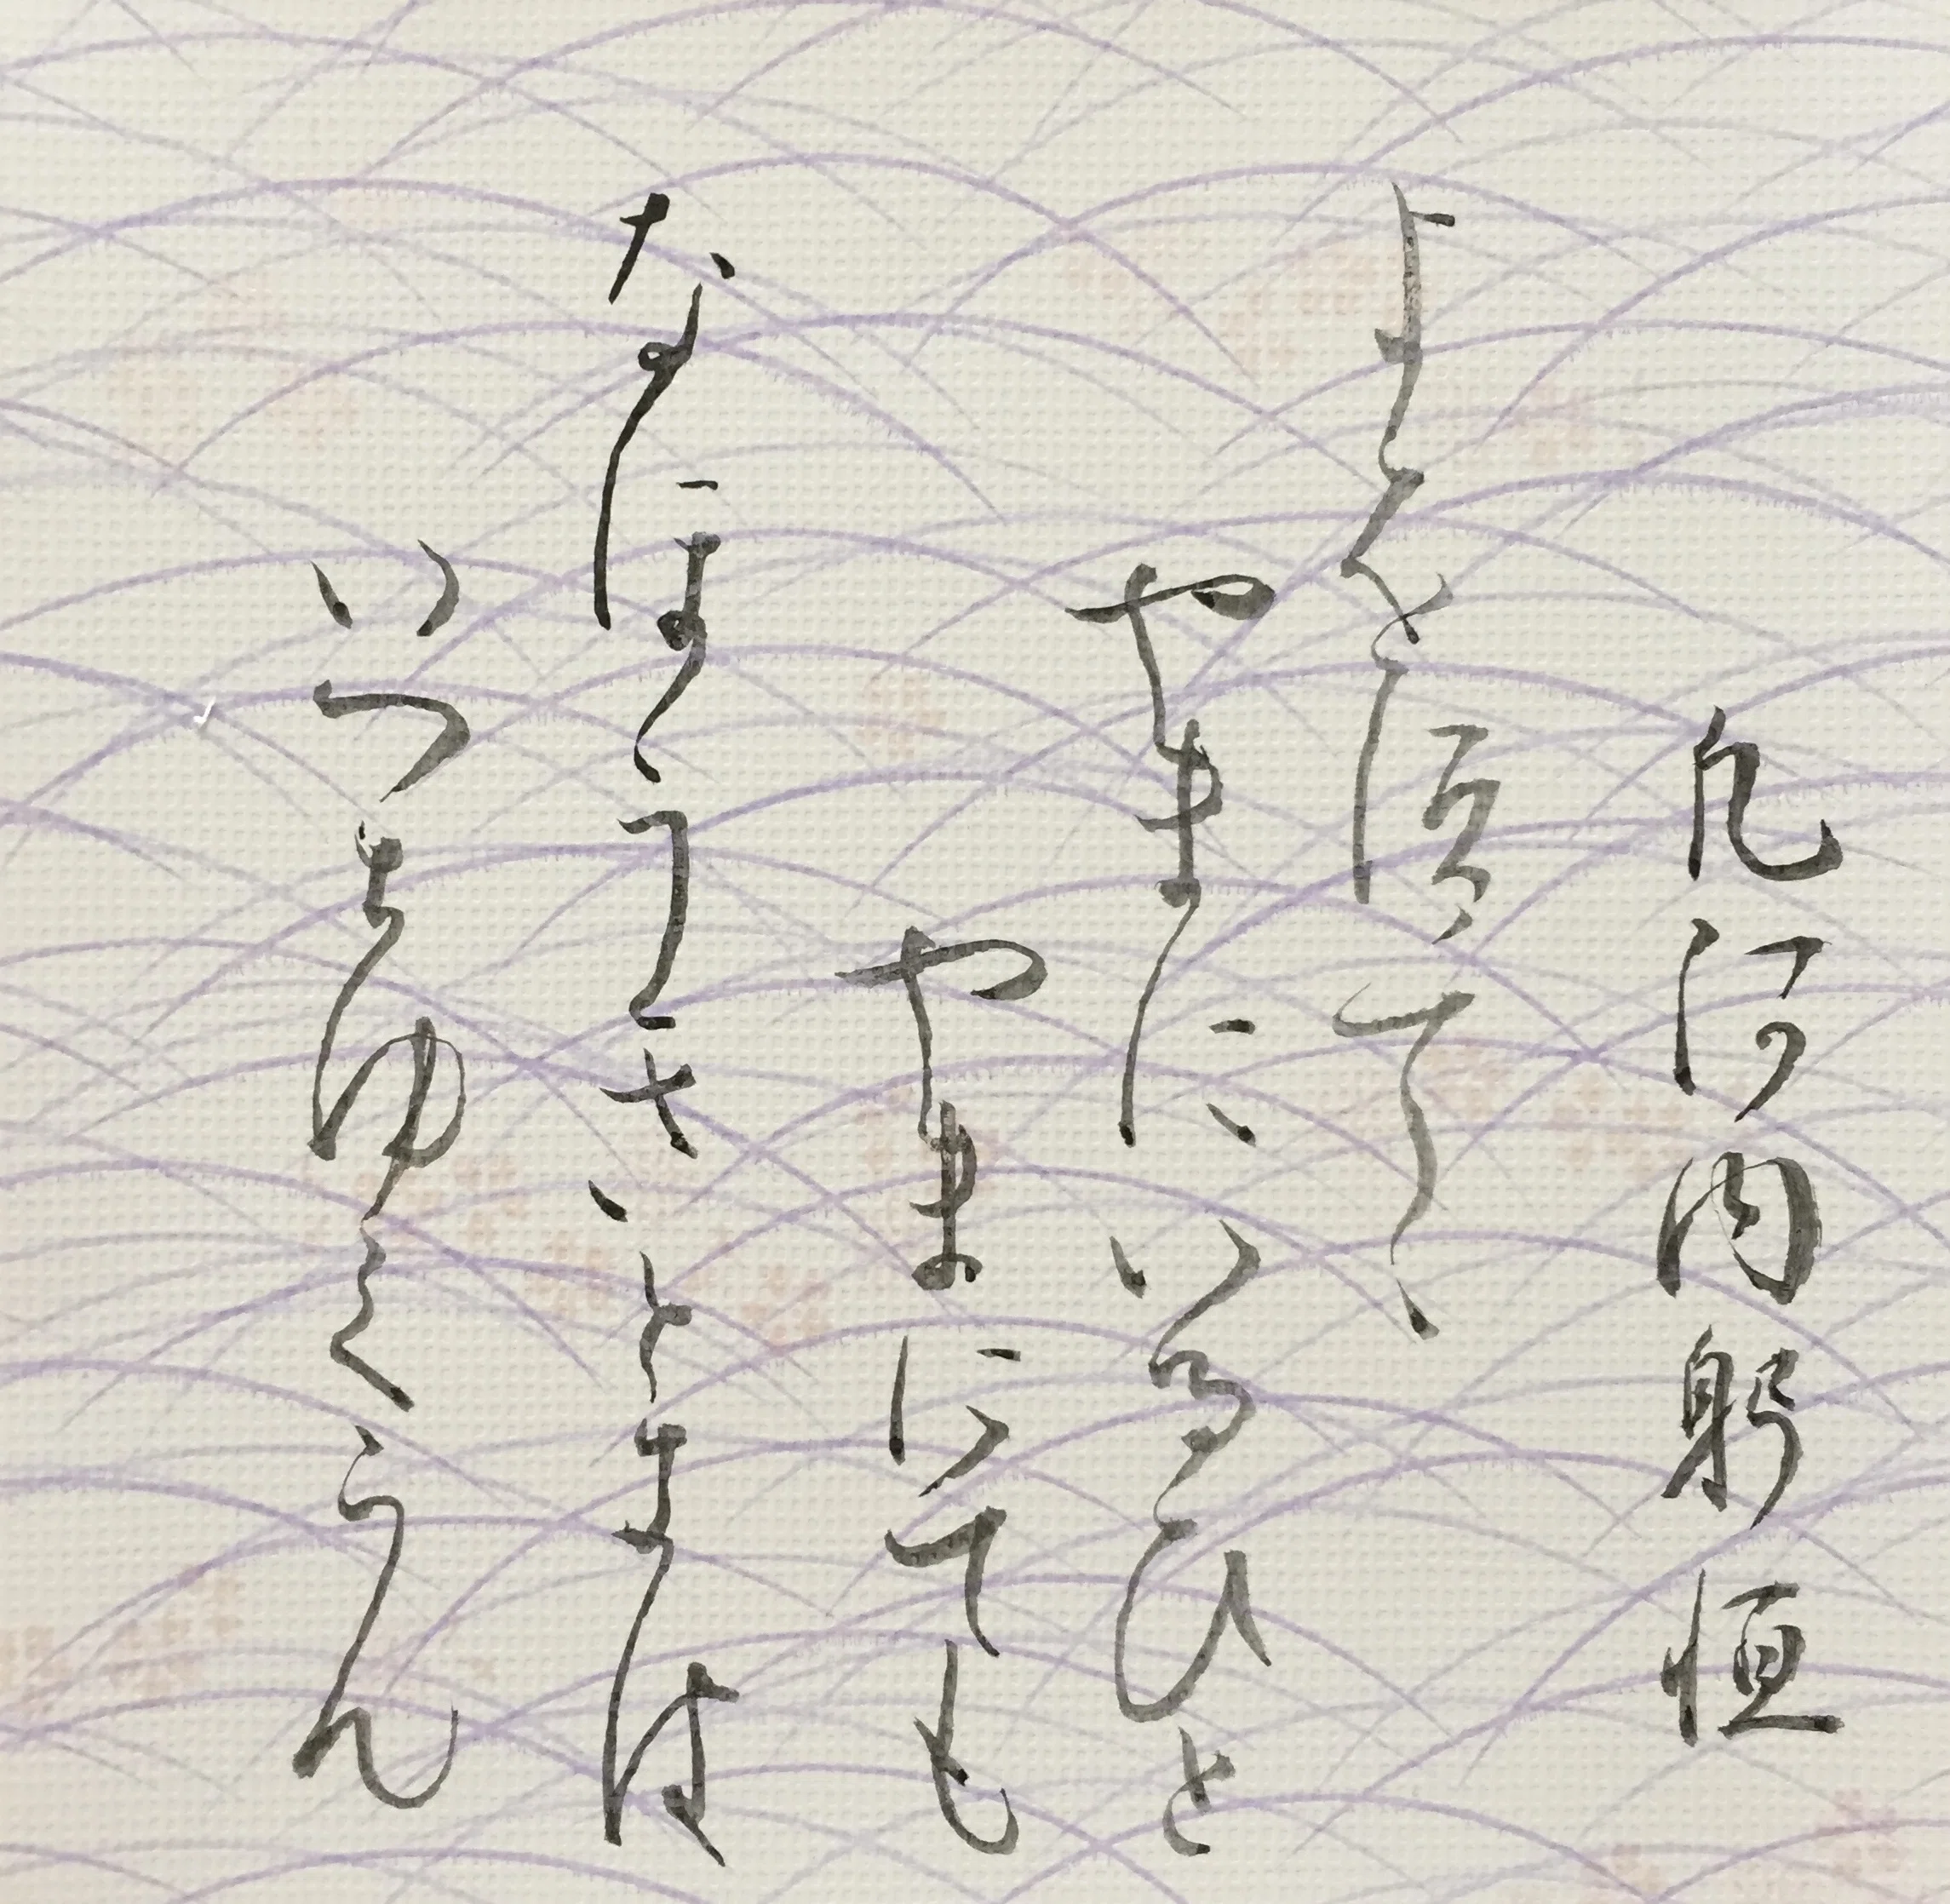 凡河内躬恒
よをすてゝ
やまにいるひと
やまにても
なほうきときは
いつちゆくらん